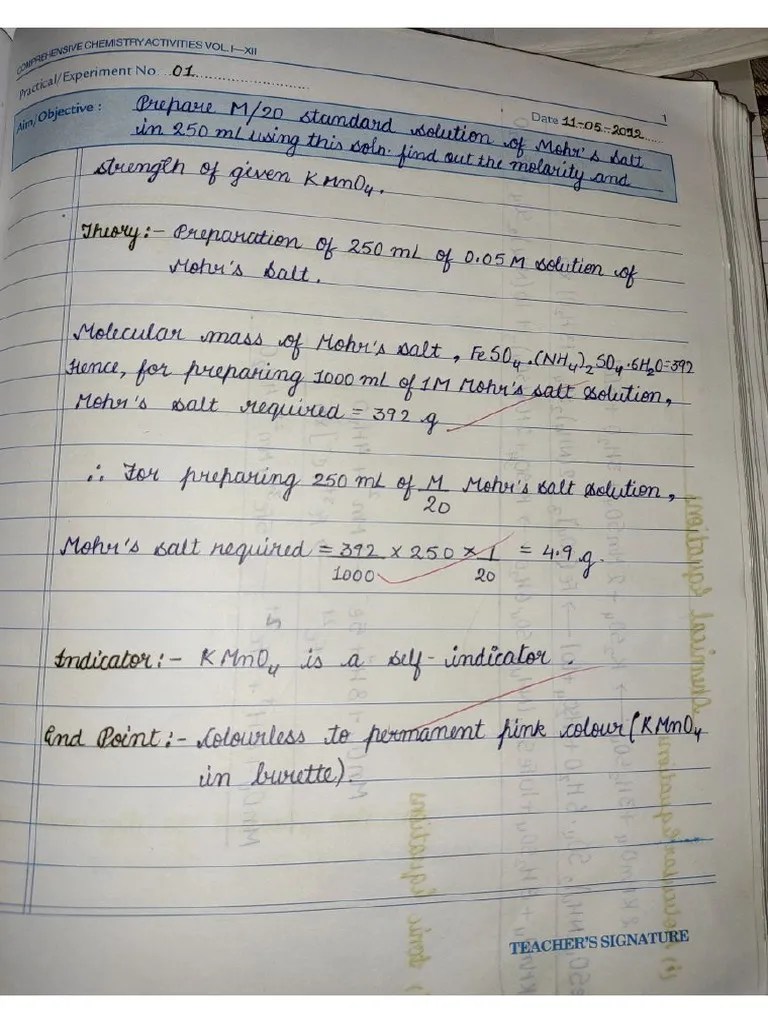 COMPREHENSIVE CHEMISTRY ACTIVITIES VOL. I—XII
Practical/Experiment No. 01
1
Date 11-05-2022
Aim/Objective : Prepare M/20 standard solution of Mohr's salt
in 250 ml using this soln. find out the molarity and
strength of given KMnO₄.
Theory:- Preparation of 250 mL of 0.05 M solution of
Mohr's salt.
Molecular mass of Mohr's salt, FeSO₄.(NH₄)₂SO₄.6H₂O=392
Hence, for preparing 1000 mL of 1M Mohr's salt solution,
Mohr's salt required = 392 g
∴ For preparing 250 mL of M/20 Mohr's salt solution,
Mohr's salt required = 392/1000 × 250 × 1/20 = 4.9 g.
Indicator:- KMnO₄ is a self-indicator.
End Point:- Colourless to permanent pink colour (KMnO₄
in burette).
TEACHER'S SIGNATURE